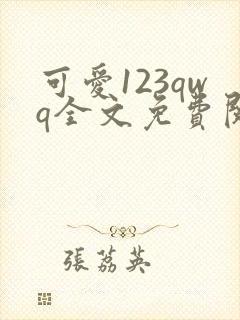 可愛123qw
q全文免費閱
張荔英